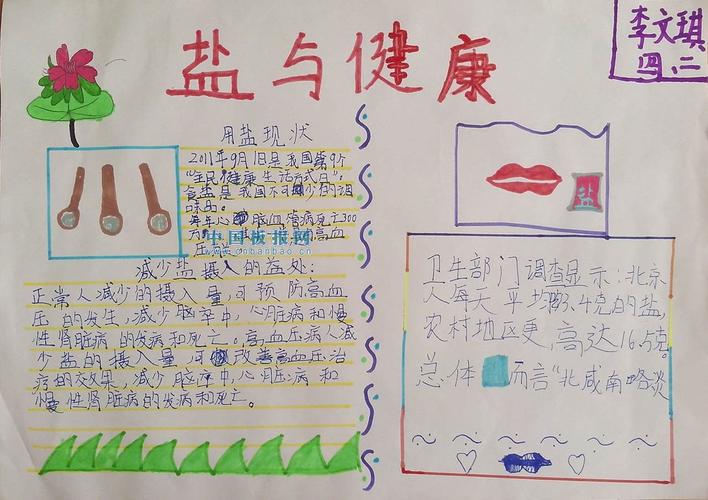 盐与健康
李文琪
四.二
用盐现状
2011年9月1日是我国第9个
"全民健康生活方式日"。
食盐是我国不可缺少的调
味品。
每年心脑血管病死亡300
万
高血
压
中国板报网
www.cnbanbao.cn
减少盐摄入的益处:
正常人减少的摄入量,可预防高血
压的发生,减少脑卒中,心脏病和慢
性肾脏病的发病和死亡。高血压病人减
少盐的摄入量,可改善高血压治
疗的效果,减少脑卒中,心脏病和
慢性肾脏病的发病和死亡。
盐
卫生部门调查显示:北京
人每天平均13.4克的盐,
农村地区更高达16.5克。
总体而言"北咸南略淡